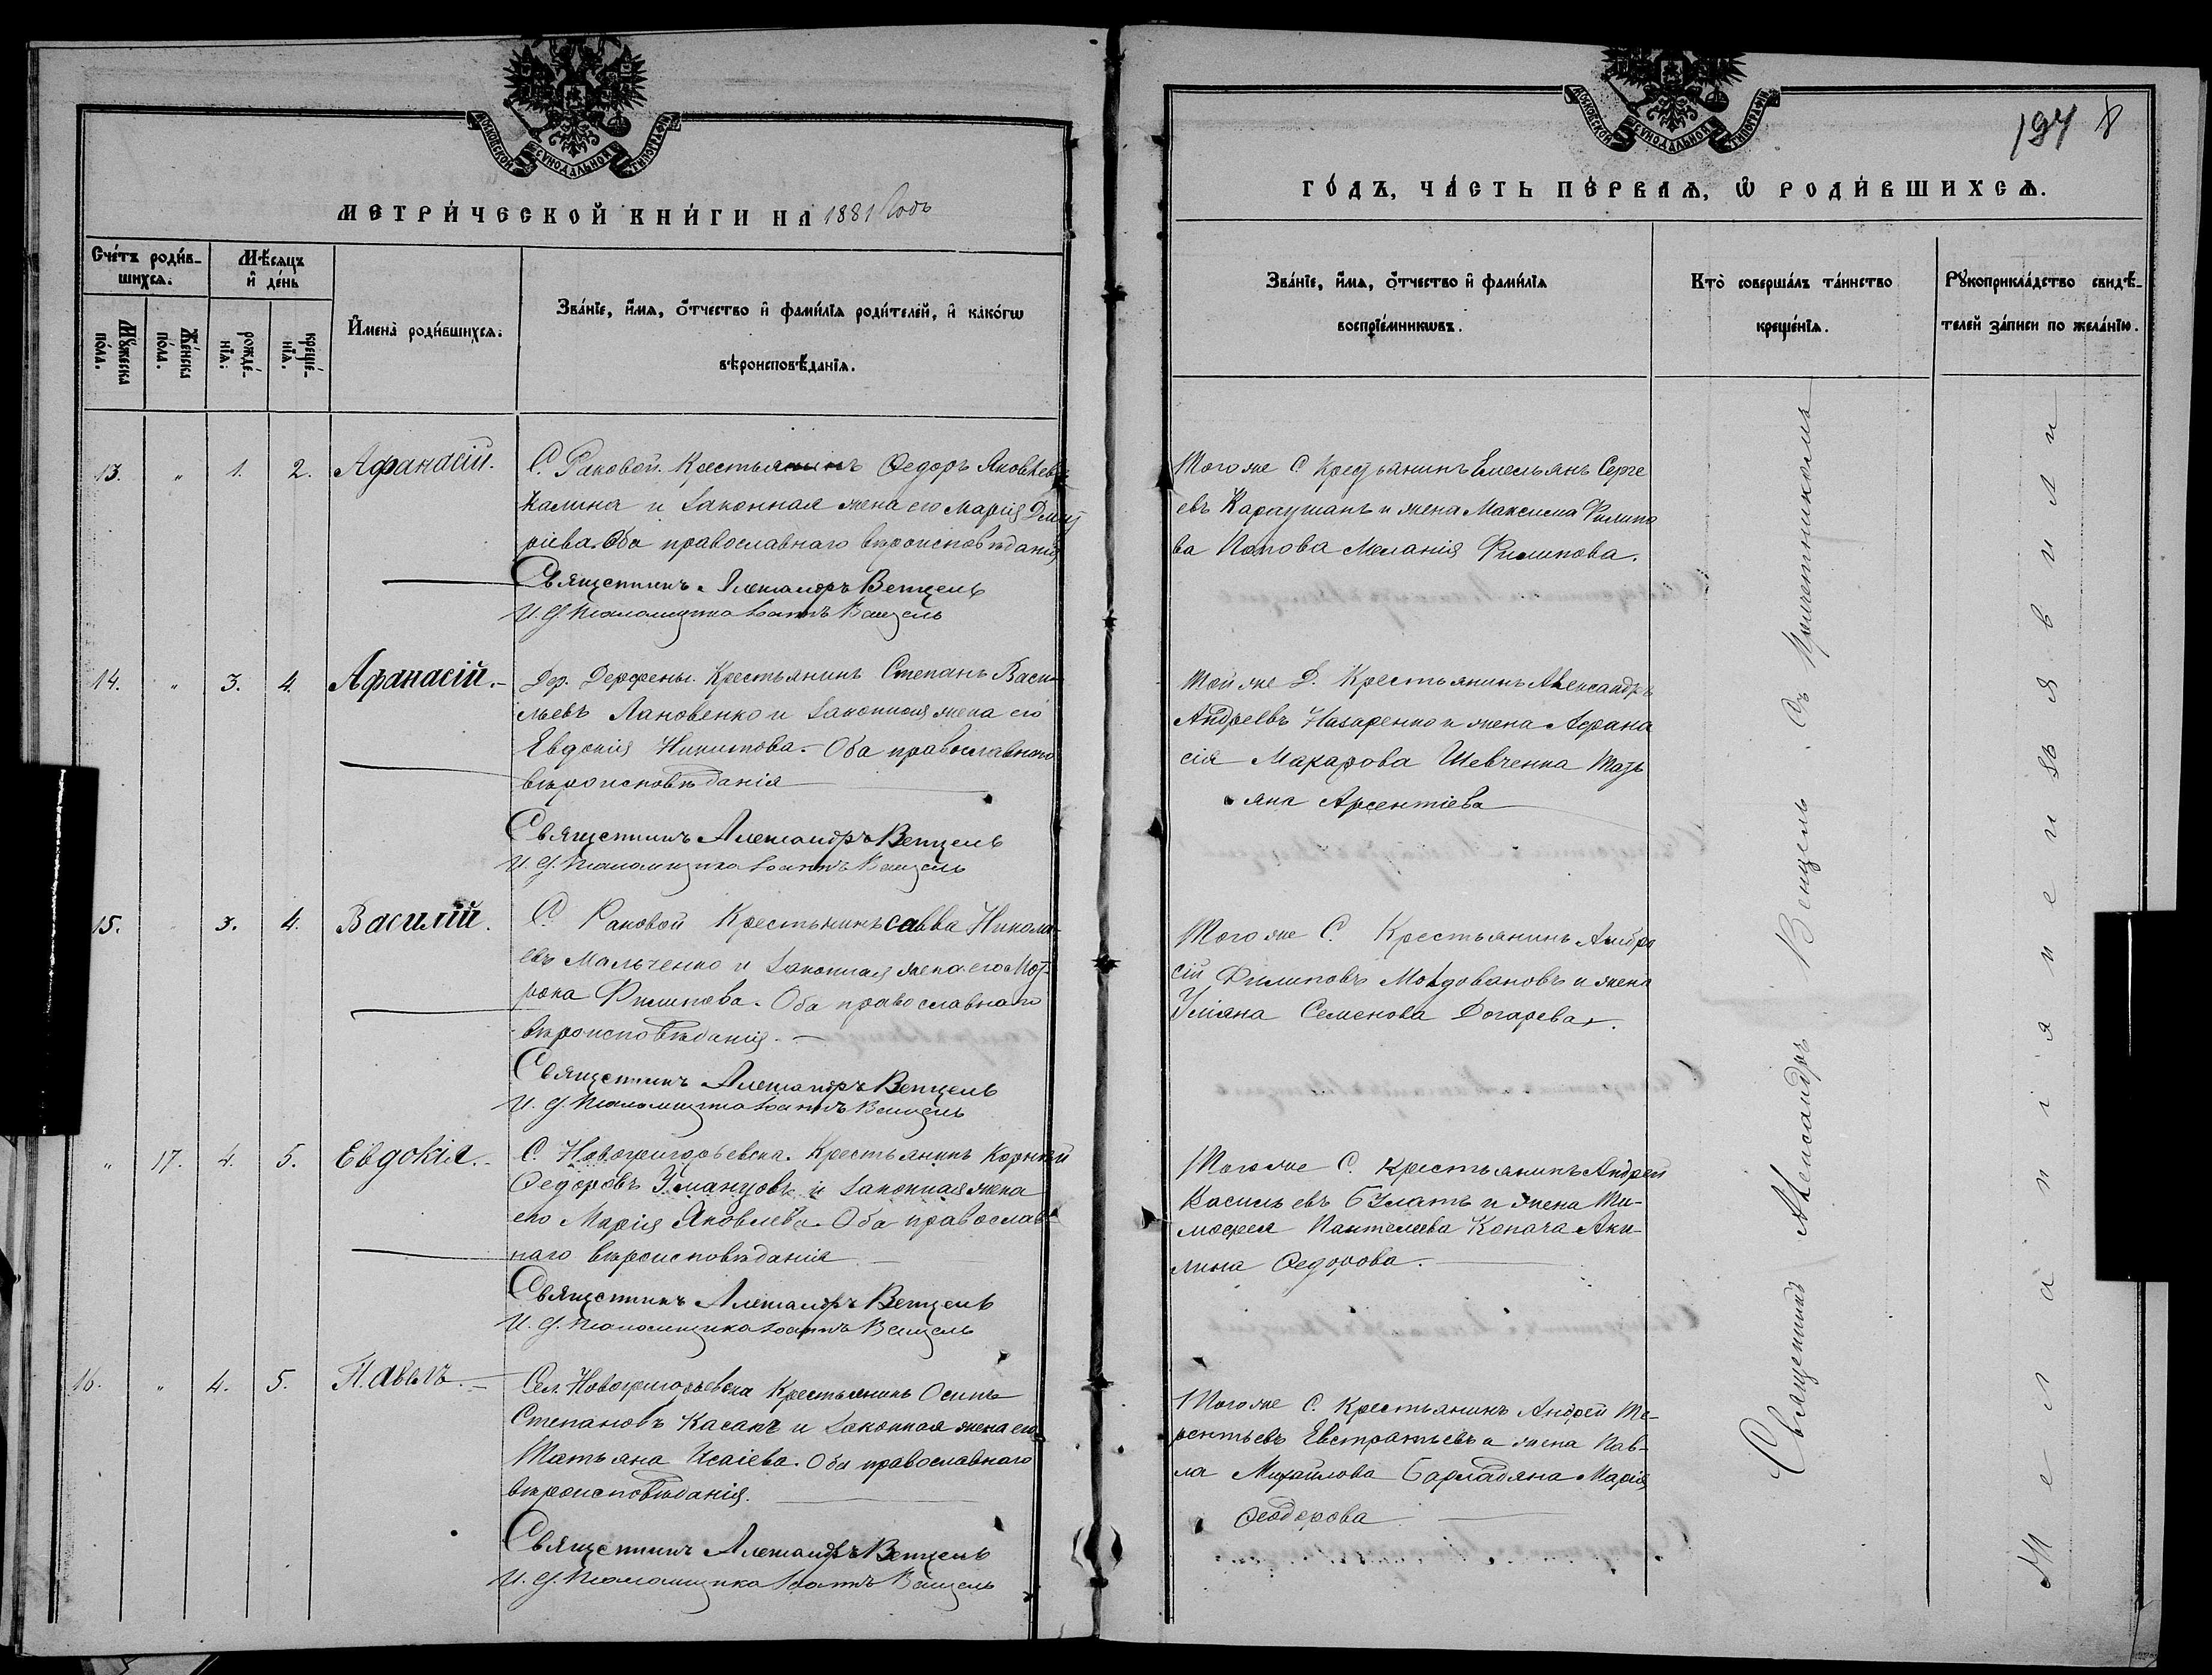 МОСКОВСКОЙ СѴНОДАЛЬНОЙ ТИПОГРАФІИ
МЕТРИ́ЧЕСКОЙ КНИ́ГИ НА 1881 Годъ
Сче́тъ роди́в-
шихсѧ.
Мꙋ́жеска по́ла.
Же́нска по́ла.
Мѣ́сѧцъ и҆ де́нь
рожде́-нїѧ.
креще́-нїѧ.
И҆мена̀ роди́вшихсѧ.
Зва́нїе, и҆́мѧ, ѻ҆́тчество и҆ фами́лїѧ роди́телей, и҆ како́гѡ
вѣроисповѣ́данїѧ.
13. " 1. 2. Афанасій.
С. Раковой. Крестьянинъ Ѳедоръ Яковлевъ
Калина и законная жена его Марія Дмит
ріева. Оба православнаго вѣроисповѣданія
Священникъ Александръ Венцель
И. д. Псаломщика Іоаннъ Венцель
14. " 3. 4. Афанасій.
Дер. Дерфены. Крестьянинъ Степанъ Васи-
льевъ Лановенко и законная жена его
Евдокія Никитова. Оба православнаго
вѣроисповѣданія
Священникъ Александръ Венцель
И. д. Псаломщика Іоаннъ Венцель
15. 3. 4. Василій.
С. Раковой Крестьянинъ Савва Никола-
евъ Мальченко и законная жена его Мот-
рона Филипова. Оба православнаго
вѣроисповѣданія.
Священникъ Александръ Венцель
И. д. Псаломщика Іоаннъ Венцель
" 17. 4. 5. Евдокія.
С. Новогригорьевка. Крестьянинъ Корній
Ѳедоровъ Уманцовъ и законная жена
его Марія Яковлева. Оба православ-
наго вѣроисповѣданія
Священникъ Александръ Венцель
И. д. Псаломщика Іоаннъ Венцель
16. " 4. 5. Павелъ.
Сел. Новогригорьевка Крестьянинъ Осипъ
Степановъ Касапъ и законная жена его
Татьяна Исаіева. Оба православнаго
вѣроисповѣданія.
Священникъ Александръ Венцель
И. д. Псаломщика Іоаннъ Венцель
МОСКОВСКОЙ СѴНОДАЛЬНОЙ ТИПОГРАФІИ
194 8
ГО́ДЪ, ЧА́СТЬ ПЕ́РВАѦ, Ѡ҆ РОДИ́ВШИХСѦ.
Зва́нїе, и҆́мѧ, ѻ҆́тчество и҆ фами́лїѧ
воспрїе́мникѡвъ.
Кто̀ соверша́лъ та́инство
креще́нїѧ.
Рꙋкоприкла́дство свидѣ́-
телей за́писи по жела́нїю.
Того же С. Крестьянинъ Емельянъ Серге
евъ Караушанъ и жена Максима Филипо
ва Попова Меланія Филипова.
Той же Д. Крестьянинъ Александръ
Андреевъ Назаренко и жена Афана
сія Макарова Шевченка Тать
яна Арсентіева
Того же С. Крестьянинъ Амбро
сій Филиповъ Молдовановъ и жена
Уліяна Семенова Догарева.
Того же С. Крестьянинъ Андрей
Васильевъ Булатъ и жена Ти-
мофея Пантелеева Копача Аки-
лина Ѳедорова.
Того же С. Крестьянинъ Андрей Те-
рентьевъ Евстратьевъ и жена Пав-
ла Михайлова Барладяна Марія
Ѳеодорова
Священникъ Александръ Венцель. Съ Причетникомъ
Желанія не изъявили